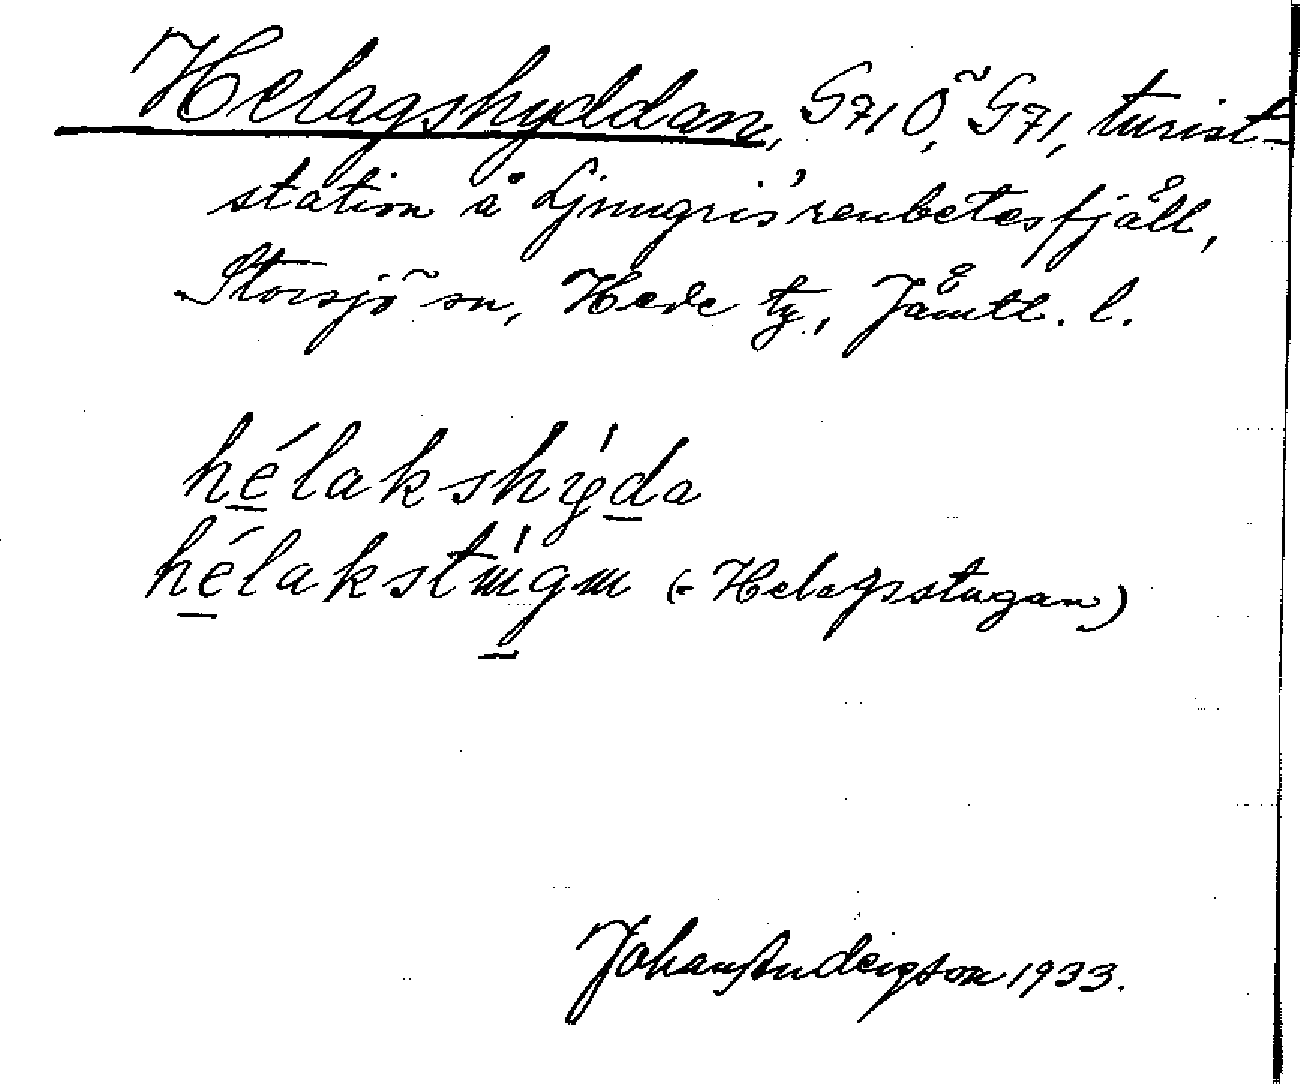 Helagshyddan, G71 Ö, G71, turist-
station å Ljungris' renbetesfjäll,
Storsjö sn, Hede tg., Jämtl. l.
hélakshýda
hélakstɯ́gɯ (= Helagsstugan)
Johan Andergson 1933.